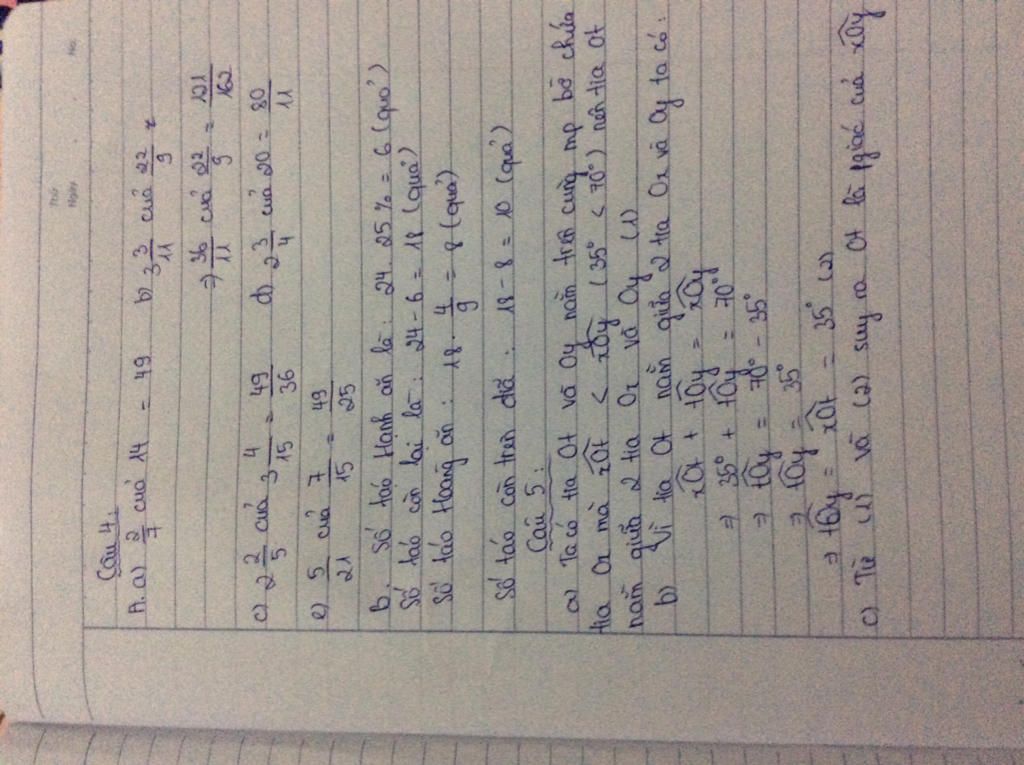 Thứ
Ngày
No.
Câu 4:
A. a) 2/7 của 14 = 49 b) 3 3/11 của 22/9
⇒ 36/11 của 22/9 = 121/162
c) 2 2/5 của 3 4/15 = 49/36 d) 2 3/4 của 20 = 80/11
e) 5/21 của 7/15 = 49/25
B. Số táo Hạnh ăn là: 24. 25% = 6 (quả)
Số táo còn lại là: 24 - 6 = 18 (quả)
Số táo Hoàng ăn: 18. 4/9 = 8 (quả)
Số táo còn trên đĩa: 18 - 8 = 10 (quả)
Câu 5:
a) Ta có tia Ot và Oy nằm trên cùng mp bờ chứa
tia Ox mà xOt < xOy (35° < 70°) nên tia Ot
nằm giữa 2 tia Ox và Oy (1)
b) Vì tia Ot nằm giữa 2 tia Ox và Oy ta có:
xOt + tOy = xOy
⇒ 35° + tOy = 70°
⇒ tOy = 70° - 35°
⇒ tOy = 35°
⇒ tOy = xOt = 35° (2)
c) Từ (1) và (2) suy ra Ot là pgiác của xOy